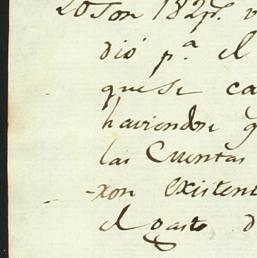 20 Son 182p.s v
dió p.a el
que se ca
haviendose g
las Cuentas
xon existen
el gasto d